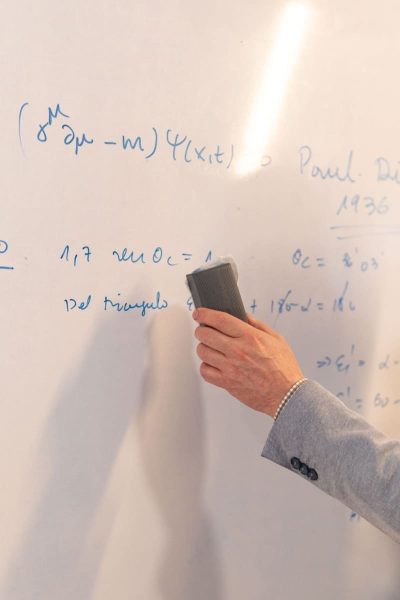 (γ^μ ∂μ - m) Ψ(x,t) = 0 Paul. Di
1936
1,7 sen θc = 1 θc =
Del triangulo + 180 - α = 180
⇒ ε1' = α -
' = 60 -